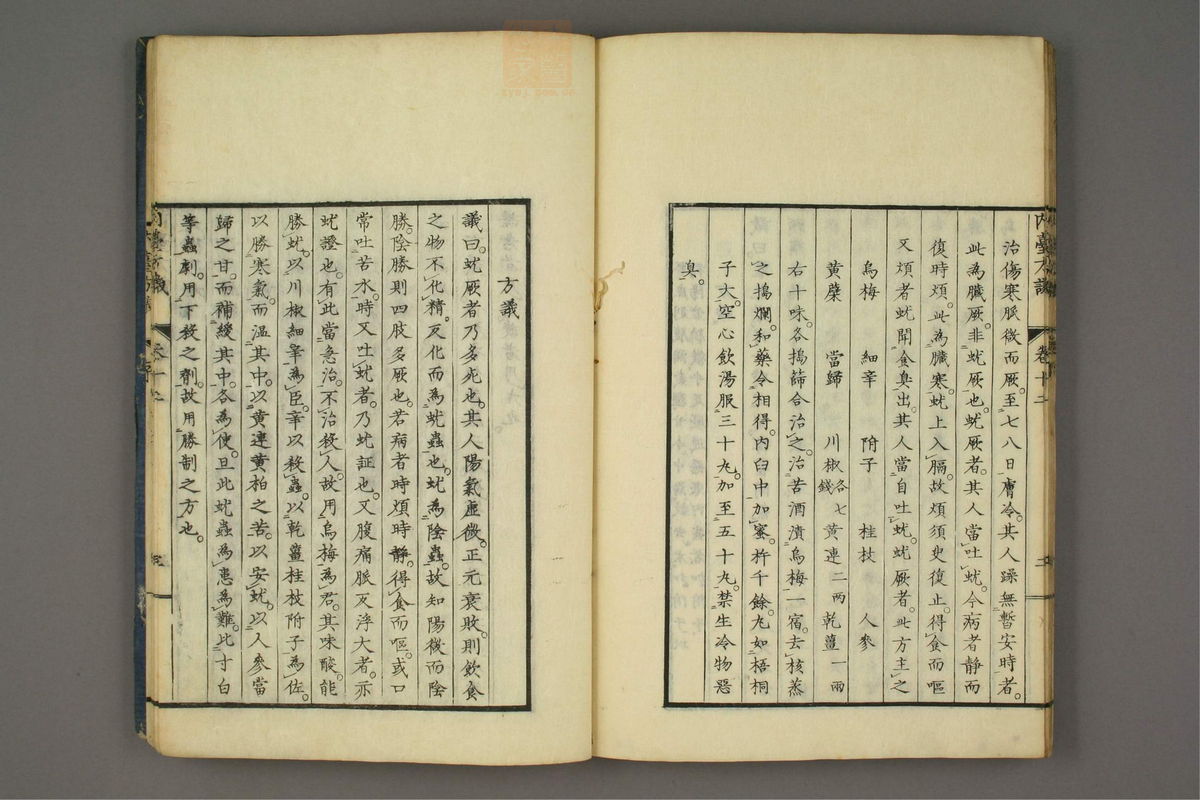 治傷寒脈微而厥。至七八日膚冷。其人躁無暫安時者。
此為臟厥。非蚘厥也。蚘厥者。其人當吐蚘。今病者靜而
復時煩。此為臟寒。蚘上入膈。故煩須臾復止。得食而嘔
又煩者蚘聞食臭出。其人當自吐蚘。蚘厥者。此方主之
烏梅 細辛 附子 桂枝 人參
黃蘗 當歸 川椒各七錢 黃連二兩 乾薑一兩
右十味。各搗篩合治之。治苦酒漬烏梅一宿。去核蒸
之搗爛。和藥令相得。內臼中加蜜。杵千餘。丸如梧桐
子大。空心飲湯服三十丸。加至五十丸。禁生冷物惡
臭。
方議
議曰。蚘厥者乃多死也。其人陽氣虛微。正元衰敗。則飲食
之物不化精。反化而為蚘蟲也。蚘為陰蟲。故知陽微而陰
勝。陰勝則四肢多厥也。若病者時煩時靜。得食而嘔。或口
常吐苦水。時又吐蚘者。乃蚘証也。又腹痛脈反浮大者。亦
蚘證也。有此當急治。不治殺人。故用烏梅為君。其味酸。能
勝蚘。以川椒細辛為臣。辛以殺蟲。以乾薑桂枝附子為佐。
以勝寒氣。而溫其中。以黃連黃柏之苦。以安蚘。以人參當
歸之甘。而補緩其中。各為使。旦此蚘蟲為患為難。比寸白
等蟲劇。用下殺之劑。故用勝制之方也。